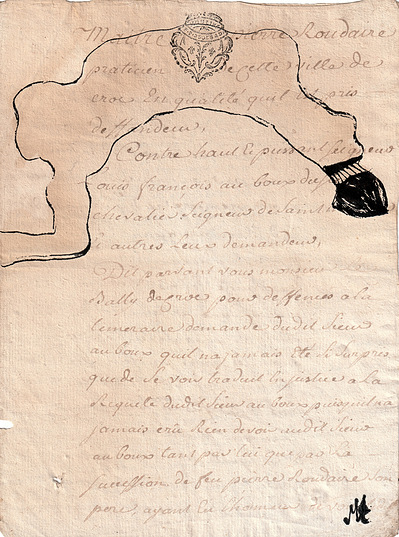 Maitre pierre Roudaire
praticien de cette ville de
croc En qualité quil est pris
deffendeur,
Contre haut Et puissant seigneur
Louis francois auboux des
chevalier seigneur de Saint
& autres Lieux demandeur,
Dit pardevant vous monsieur
Bally de croc pour deffences a la
temeraire demande dudit Sieur
auboux quil na jamais Eté si surpris
que de se voir traduit En justice a la
Requete dudit Sieur auboux puisquil na
jamais crû Rien devoir audit Sieur
auboux tant par lui que par La
succession de feu pierre Roudaire Son
pere, ayant Eu Lhonneur de